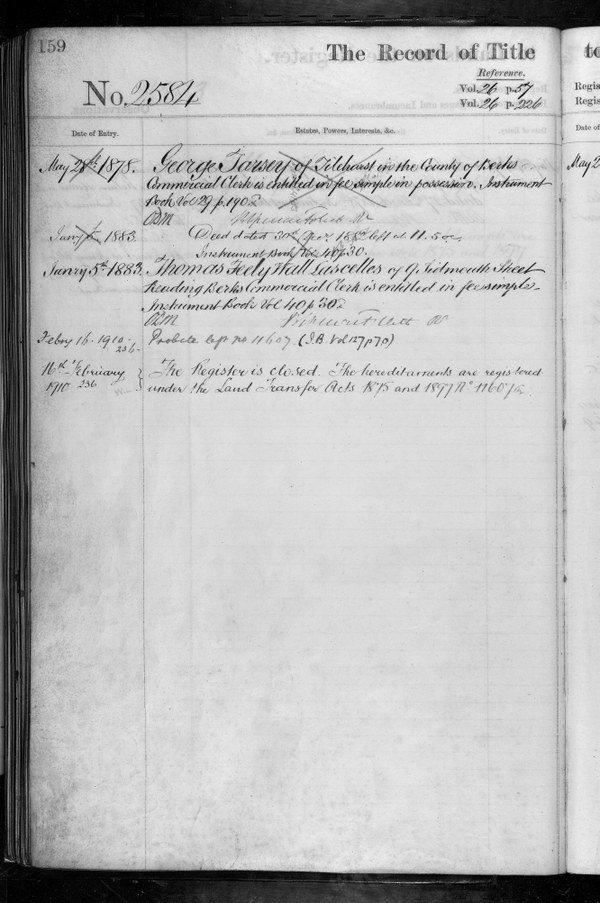 159
The Record of Title
to
Reference.
No. 2584
Vol. 26 p. 57
Vol. 26 p. 226
Regis
Regis
Date of Entry.
Estates, Powers, Interests, &c.
May 27th 1878. George Tarsey of Tilehurst in the County of Berks
Commercial Clerk is entitled in fee simple in possession. Instrument
Book Vol 29 p. 190
May 2
Jany 1883. Deed dated 30th 1882 left at 11.5
Instrument Book Vol 40 p 30.
Janry 5th 1883. Thomas Feely Hall Lascelles of 9, Sidmouth Street
Reading Berks Commercial Clerk is entitled in fee simple
Instrument Book Vol 40 p 30
Febry 16 - 1910 - Probate left no 11607 (I.B. Vol 127 p 70)
236
16th February The Register is closed. The hereditaments are registered
1910 236 under the Land Transfer Acts 1875 and 1897 No